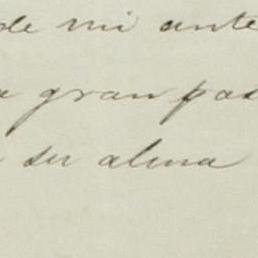 de mi ante
gran pas
su alma